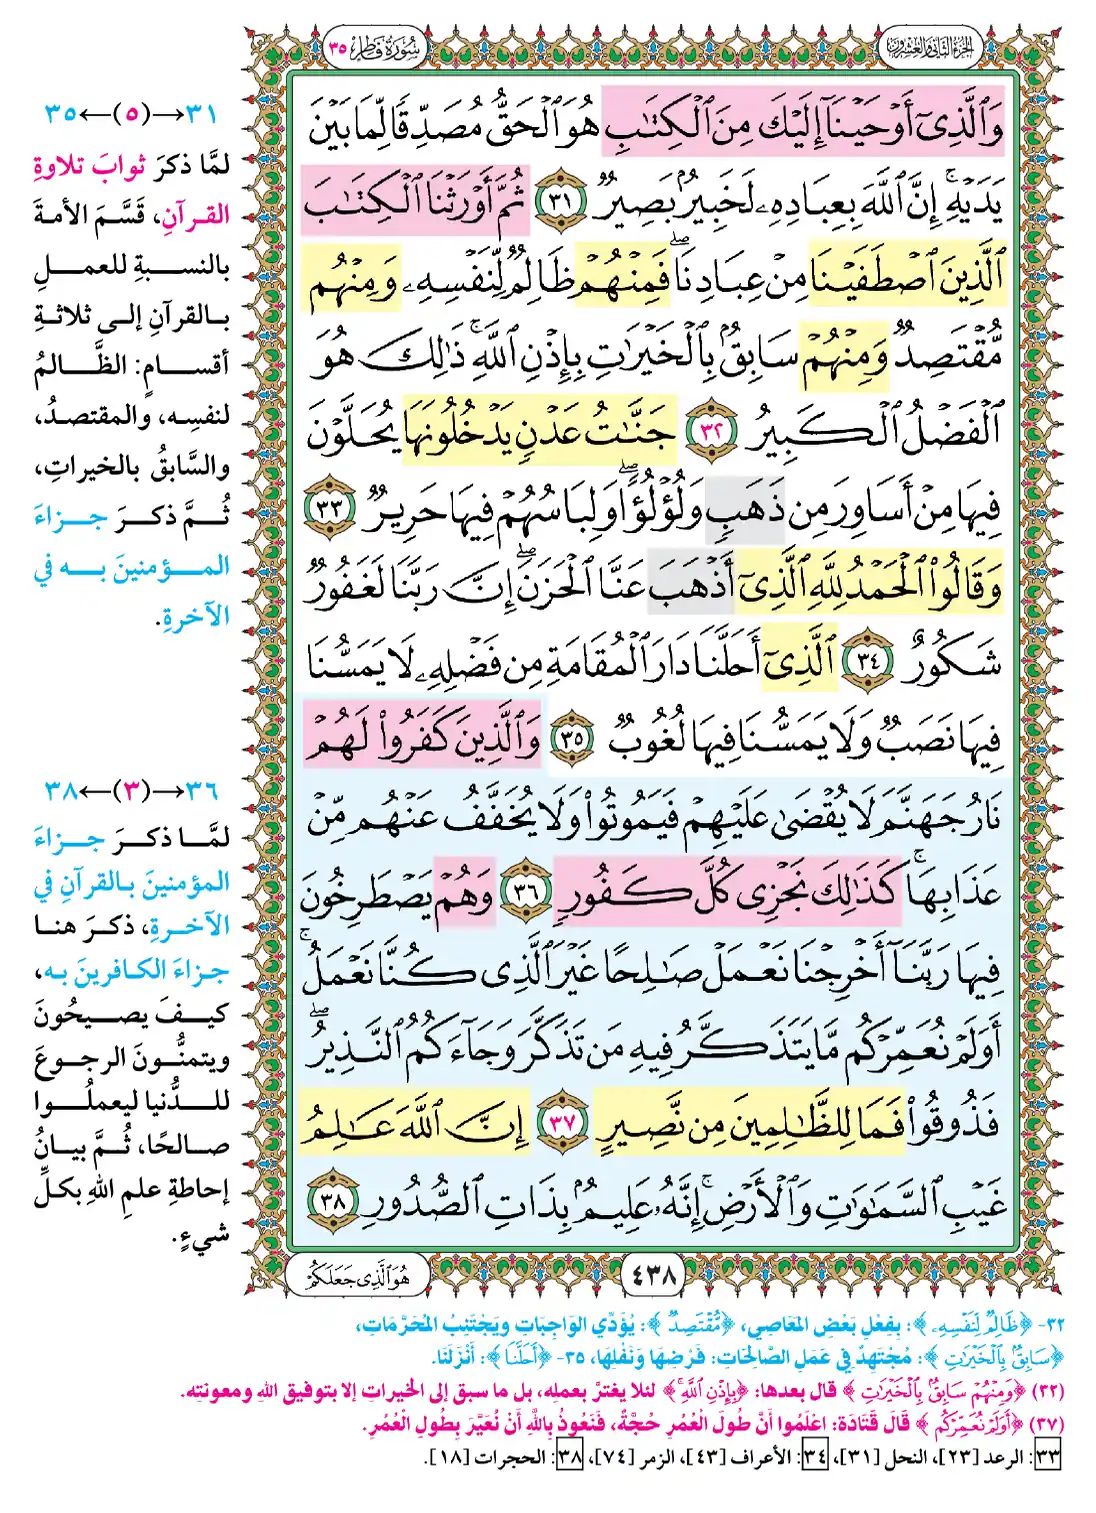 الجزء الثاني والعشرون
سورة فاطر ٣٥
وَٱلَّذِىٓ أَوْحَيْنَآ إِلَيْكَ مِنَ ٱلْكِتَٰبِ هُوَ ٱلْحَقُّ مُصَدِّقًا لِّمَا بَيْنَ
يَدَيْهِ ۗ إِنَّ ٱللَّهَ بِعِبَادِهِۦ لَخَبِيرٌۢ بَصِيرٌ ٣١ ثُمَّ أَوْرَثْنَا ٱلْكِتَٰبَ
ٱلَّذِينَ ٱصْطَفَيْنَا مِنْ عِبَادِنَا ۖ فَمِنْهُمْ ظَالِمٌ لِّنَفْسِهِۦ وَمِنْهُم
مُّقْتَصِدٌ وَمِنْهُمْ سَابِقٌۢ بِٱلْخَيْرَٰتِ بِإِذْنِ ٱللَّهِ ۚ ذَٰلِكَ هُوَ
ٱلْفَضْلُ ٱلْكَبِيرُ ٣٢ جَنَّٰتُ عَدْنٍ يَدْخُلُونَهَا يُحَلَّوْنَ
فِيهَا مِنْ أَسَاوِرَ مِن ذَهَبٍ وَلُؤْلُؤًا ۖ وَلِبَاسُهُمْ فِيهَا حَرِيرٌ ٣٣
وَقَالُوا۟ ٱلْحَمْدُ لِلَّهِ ٱلَّذِىٓ أَذْهَبَ عَنَّا ٱلْحَزَنَ ۖ إِنَّ رَبَّنَا لَغَفُورٌ
شَكُورٌ ٣٤ ٱلَّذِىٓ أَحَلَّنَا دَارَ ٱلْمُقَامَةِ مِن فَضْلِهِۦ لَا يَمَسُّنَا
فِيهَا نَصَبٌ وَلَا يَمَسُّنَا فِيهَا لُغُوبٌ ٣٥ وَٱلَّذِينَ كَفَرُوا۟ لَهُمْ
نَارُ جَهَنَّمَ لَا يُقْضَىٰ عَلَيْهِمْ فَيَمُوتُوا۟ وَلَا يُخَفَّفُ عَنْهُم مِّنْ
عَذَابِهَا ۚ كَذَٰلِكَ نَجْزِى كُلَّ كَفُورٍ ٣٦ وَهُمْ يَصْطَرِخُونَ
فِيهَا رَبَّنَآ أَخْرِجْنَا نَعْمَلْ صَٰلِحًا غَيْرَ ٱلَّذِى كُنَّا نَعْمَلُ ۚ
أَوَلَمْ نُعَمِّرْكُم مَّا يَتَذَكَّرُ فِيهِ مَن تَذَكَّرَ وَجَآءَكُمُ ٱلنَّذِيرُ ۖ
فَذُوقُوا۟ فَمَا لِلظَّٰلِمِينَ مِن نَّصِيرٍ ٣٧ إِنَّ ٱللَّهَ عَٰلِمُ
غَيْبِ ٱلسَّمَٰوَٰتِ وَٱلْأَرْضِ ۚ إِنَّهُۥ عَلِيمٌۢ بِذَاتِ ٱلصُّدُورِ ٣٨
٤٣٨
هُوَ ٱلَّذِى جَعَلَكُمْ
٣١→(٥)←٣٥
لمَّا ذكرَ ثوابَ تلاوةِ
القرآنِ، قَسَّمَ الأمةَ
بالنسبةِ للعملِ
بالقرآنِ إلى ثلاثةِ
أقسامٍ: الظَّالمُ
لنفسِه، والمقتصدُ،
والسَّابقُ بالخيراتِ،
ثُمَّ ذكرَ جزاءَ
المؤمنينَ به في
الآخرةِ.
٣٦→(٣)←٣٨
لمَّا ذكرَ جزاءَ
المؤمنينَ بالقرآنِ في
الآخرةِ، ذكرَ هنا
جزاءَ الكافرينَ به،
كيفَ يصيحُونَ
ويتمنُّونَ الرجوعَ
للدُّنيا ليعملُوا
صالحًا، ثُمَّ بيانُ
إحاطةِ علمِ اللهِ بكلِّ
شيءٍ.
٣٢- ﴿ظَالِمٌ لِّنَفْسِهِۦ﴾: بِفِعْلِ بَعْضِ المَعَاصِي، ﴿مُّقْتَصِدٌ﴾: يُؤَدِّي الوَاجِبَاتِ ويَجْتَنِبُ المُحَرَّمَاتِ،
﴿سَابِقٌۢ بِٱلْخَيْرَٰتِ﴾: مُجْتَهِدٌ فِي عَمَلِ الصَّالِحَاتِ: فَرْضِهَا وَنَفْلِهَا، ٣٥- ﴿أَحَلَّنَا﴾: أَنْزَلَنَا.
(٣٢) ﴿وَمِنْهُمْ سَابِقٌۢ بِٱلْخَيْرَٰتِ﴾ قال بعدها: ﴿بِإِذْنِ ٱللَّهِ ۚ﴾ لئلا يغترَّ بعملِه، بل ما سبق إلى الخيراتِ إلا بتوفيق اللهِ ومعونتِه.
(٣٧) ﴿أَوَلَمْ نُعَمِّرْكُم﴾ قَالَ قَتَادَةُ: اعْلَمُوا أَنَّ طُولَ الْعُمْرِ حُجَّةٌ، فَنَعُوذُ بِاللَّهِ أَنْ نُعَيَّرَ بِطُولِ الْعُمُرِ.
٣٣: الرعد [٢٣]، النحل [٣١]، ٣٤: الأعراف [٤٣]، الزمر [٧٤]، ٣٨: الحجرات [١٨].